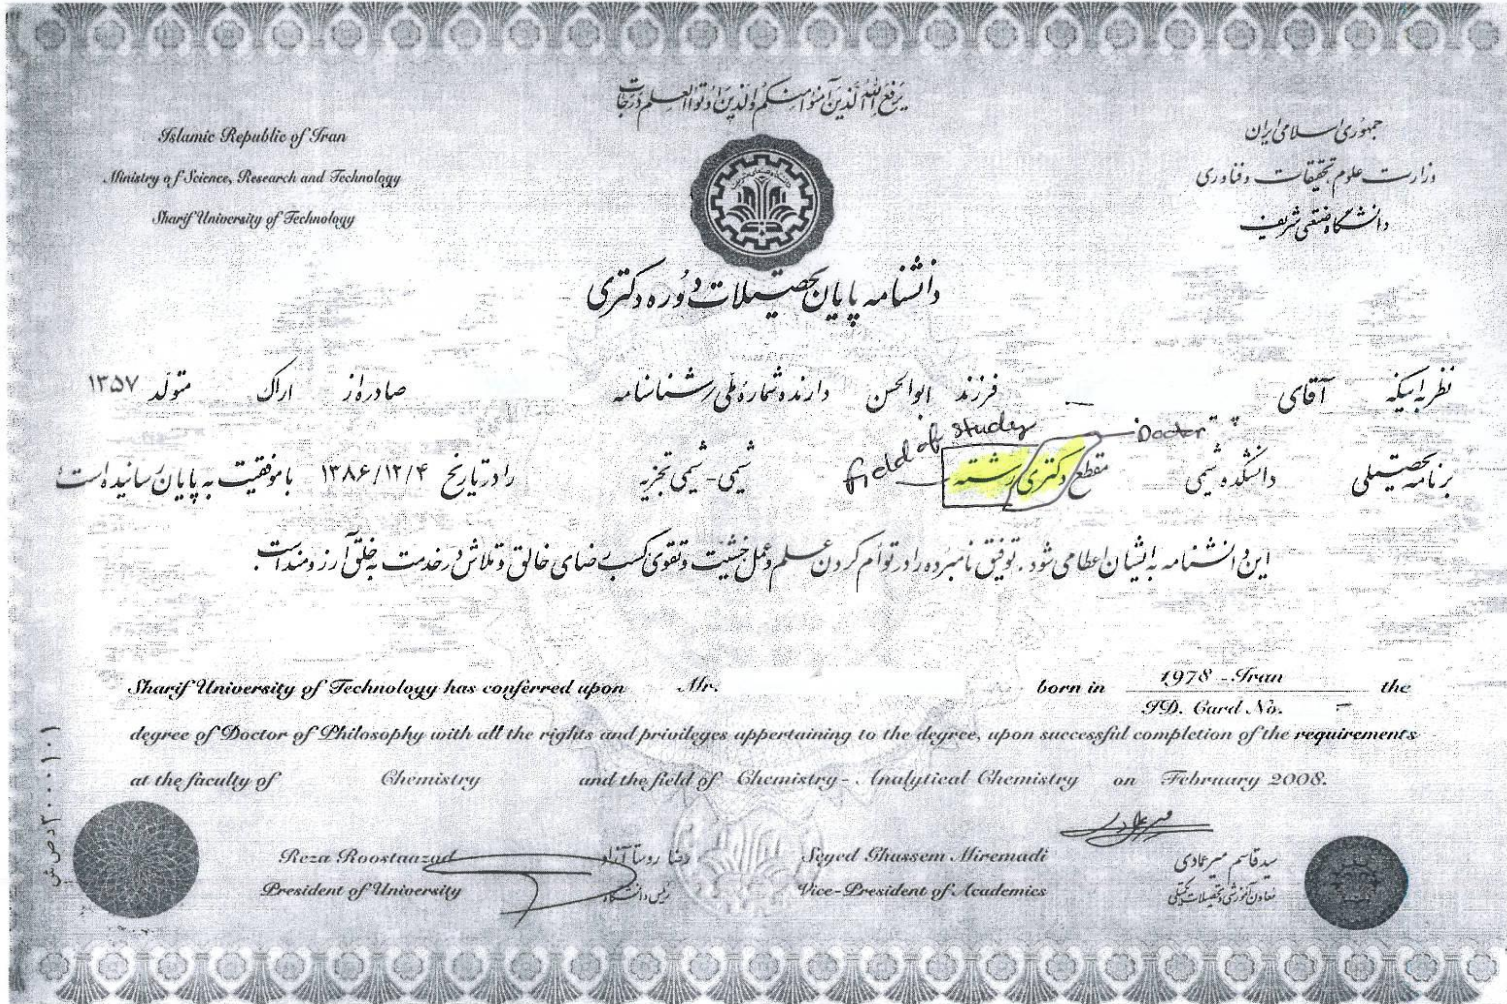 یرفع الله الذین آمنوا منکم و الذین اوتوا العلم درجات
Islamic Republic of Iran
Ministry of Science, Research and Technology
Sharif University of Technology
جمهوری اسلامی ایران
وزارت علوم تحقیقات و فناوری
دانشگاه صنعتی شریف
دانشنامه پایان تحصیلات دوره دکتری
نظر به اینکه آقای فرزند ابوالحسن دارنده شماره ملی / شناسنامه صادره از اراک متولد ۱۳۵۷
field of study Doctor
برنامه تحصیلی دانشکده شیمی مقطع دکتری رشته شیمی - شیمی تجزیه را در تاریخ ۱۳۸۶/۱۲/۴ با موفقیت به پایان رسانیده است
این دانشنامه به ایشان اعطا می شود. توفیق نامبرده را در توأم کردن علم و عمل خشیت و تقوی کسب رضای خالق و تلاش در خدمت به خلق آرزومند است
Sharif University of Technology has conferred upon Mr. born in 1978 - Iran the
ID. Card No. -
degree of Doctor of Philosophy with all the rights and privileges appertaining to the degree, upon successful completion of the requirements
at the faculty of Chemistry and the field of Chemistry - Analytical Chemistry on February 2008.
Reza Roostaazad
President of University
رضا روستا آزاد
رئیس دانشگاه
Seyed Ghassem Miremadi
Vice-President of Academics
سید قاسم میرعمادی
معاون آموزشی و تحصیلات تکمیلی